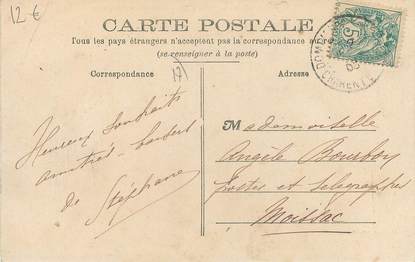 12 €
CARTE POSTALE
Tous les pays étrangers n'acceptent pas la correspondance
(se renseigner à la poste)
Correspondance
17
Adresse
5
CHARENTE
Heureux Souhaits
amitiés
de Stéphane
Mademoiselle
Angèle Bourboy
postes et télégraphes
Moissac